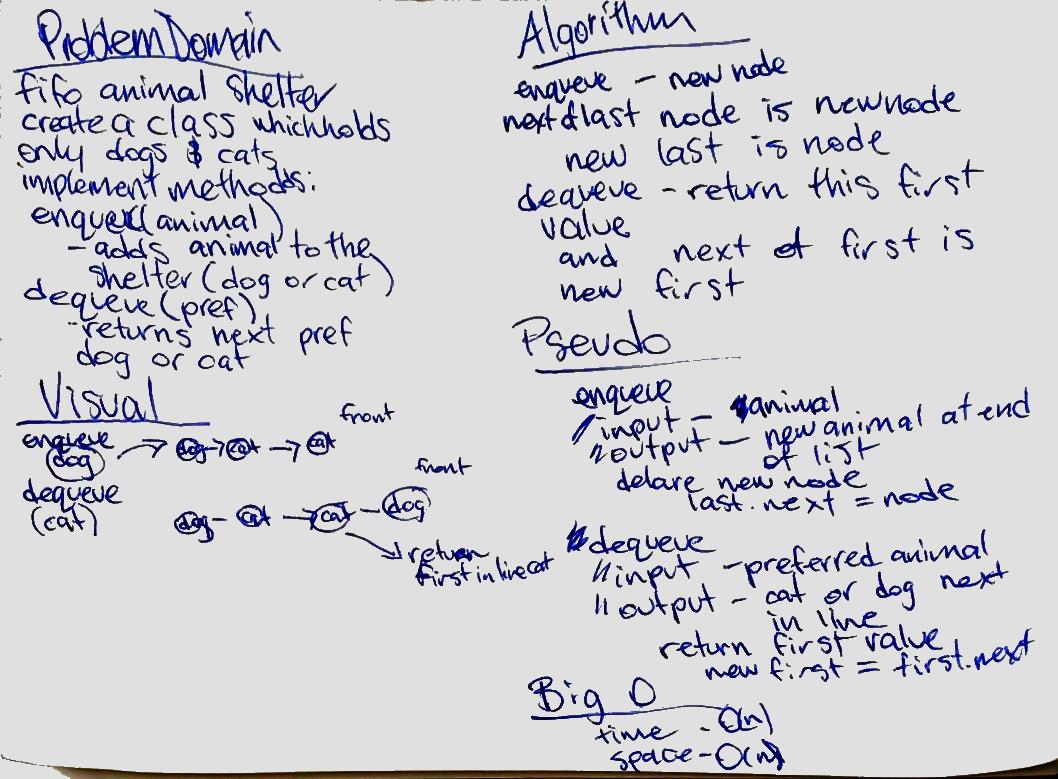 Problem Domain
fifo animal shelter
create a class which holds
only dogs & cats
implement methods:
enque(animal)
- adds animal to the
shelter (dog or cat)
dequeue (pref)
- returns next pref
dog or cat
Visual
front
enqueue
dog
dog cat cat
front
dequeue
(cat)
dog cat cat dog
return
first in line cat
Algorithm
enqueue - new node
next of last node is newnode
new last is node
dequeue - return this first
value
and next of first is
new first
Pseudo
enqueue
// input - animal
// output - new animal at end
of list
delare new node
last.next = node
dequeue
// input - preferred animal
// output - cat or dog next
in line
return first value
new first = first.next
Big O
time - O(n)
space - O(n)